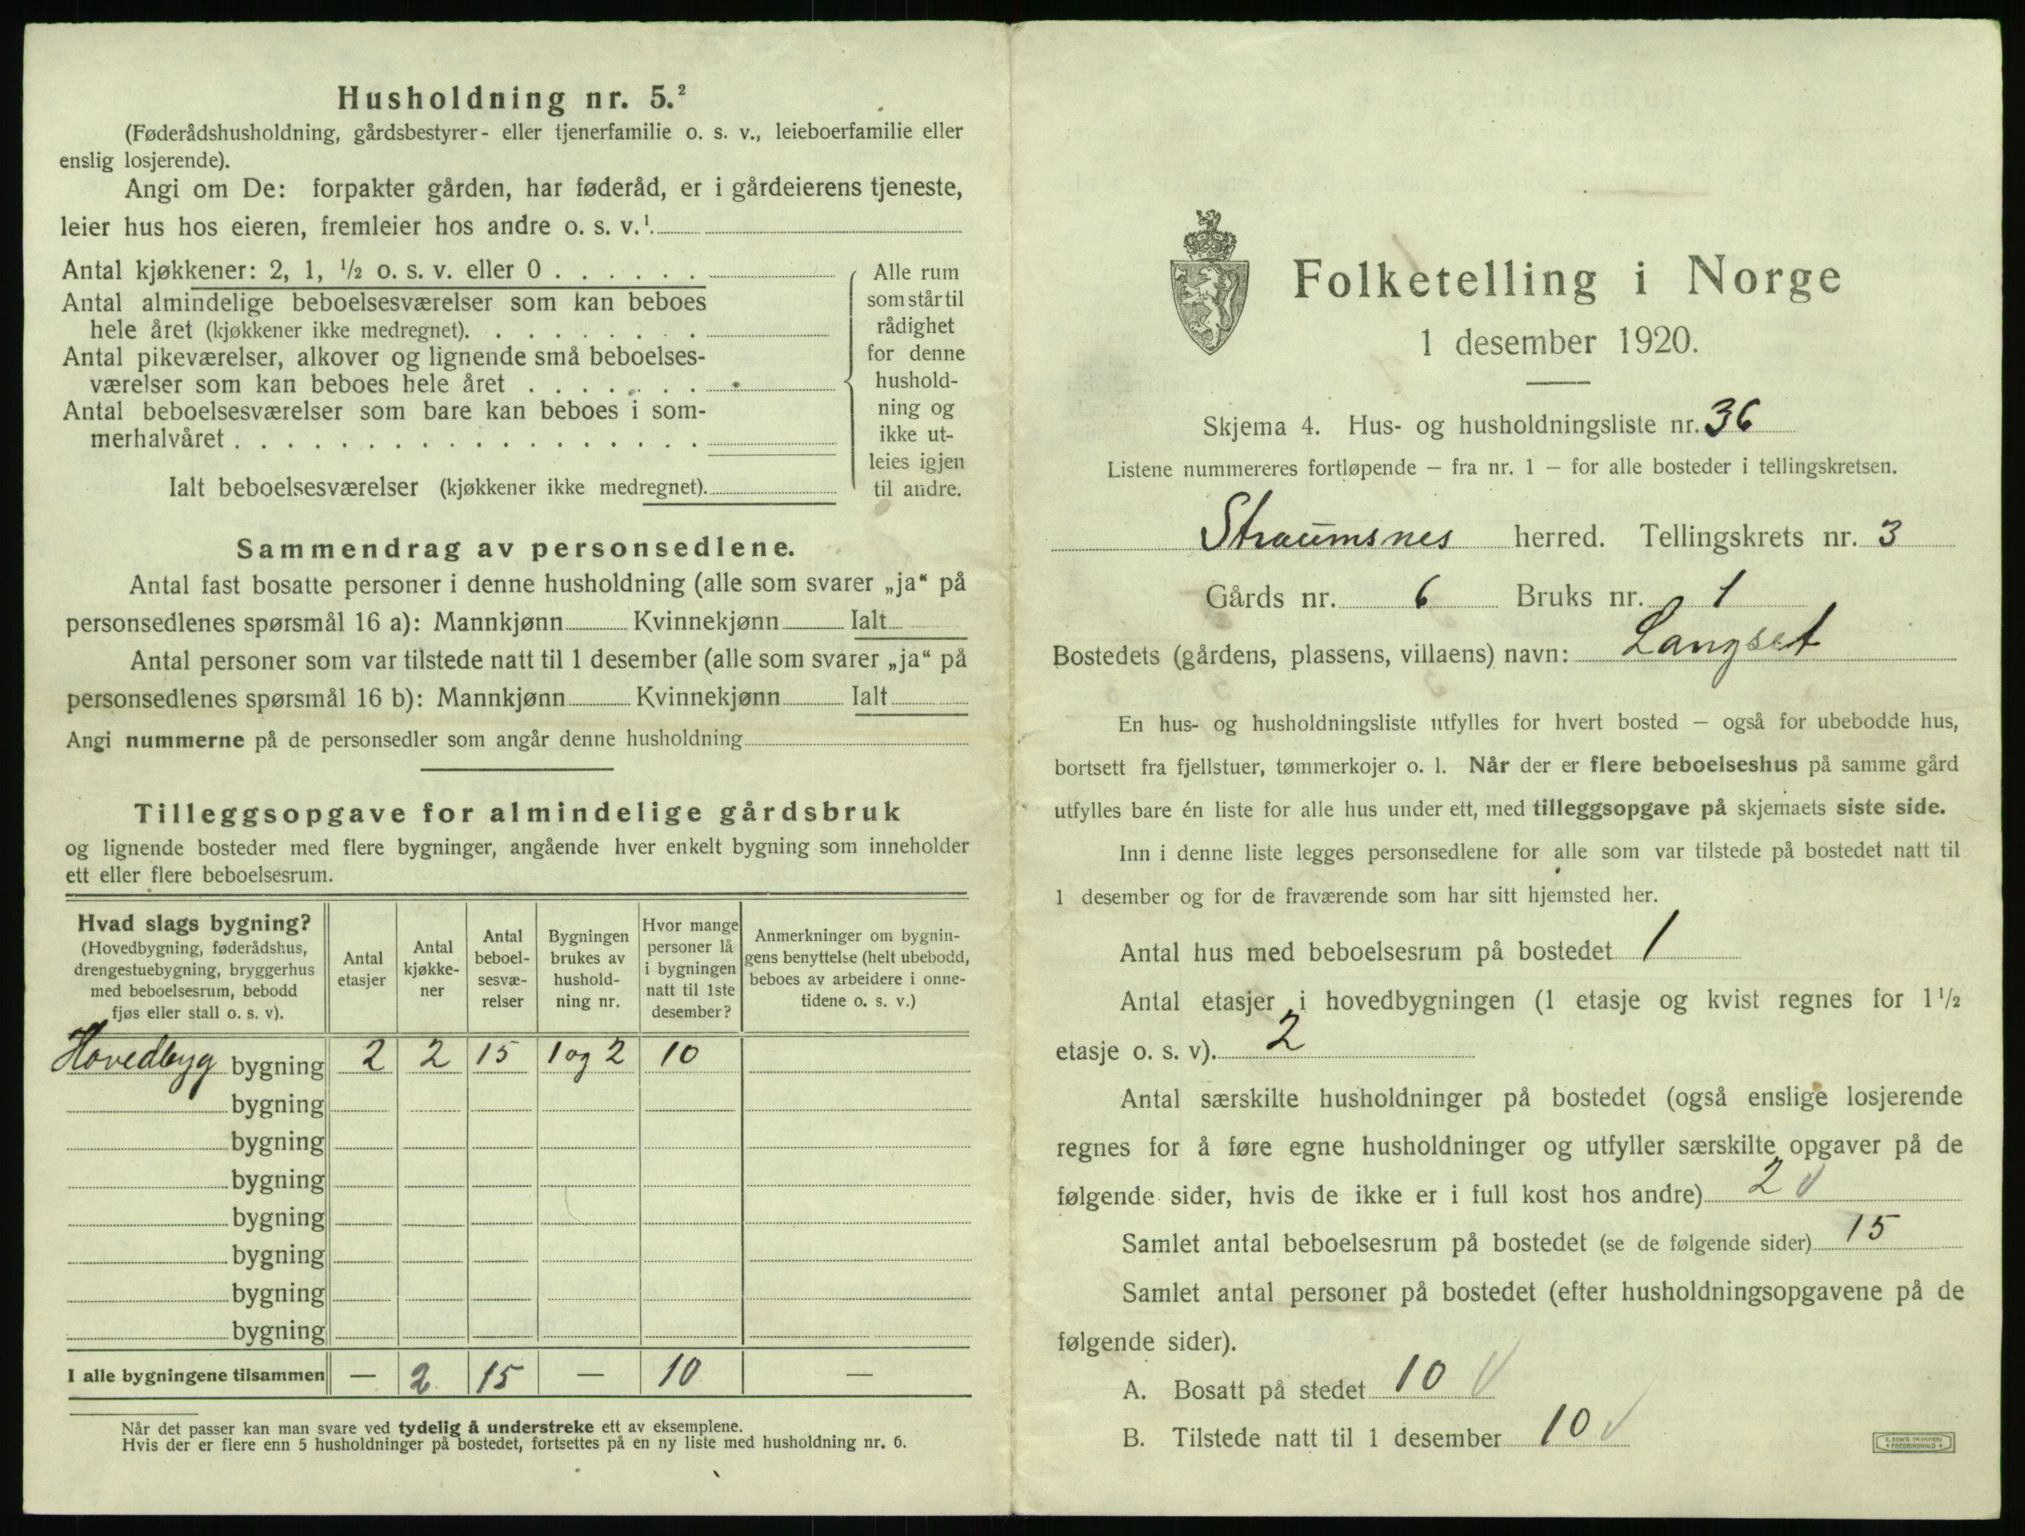 Husholdning nr. 5.²
(Føderådshusholdning, gårdsbestyrer- eller tjenerfamilie o. s. v., leieboerfamilie eller
enslig losjerende).
Angi om De: forpakter gården, har føderåd, er i gårdeierens tjeneste,
leier hus hos eieren, fremleier hos andre o. s. v.¹
Antal kjøkkener: 2, 1, ½ o. s. v. eller 0 . . . . . .
Antal almindelige beboelsesværelser som kan beboes
hele året (kjøkkener ikke medregnet). . . . . . . . .
Antal pikeværelser, alkover og lignende små beboelses-
værelser som kan beboes hele året . . . . . . .
Antal beboelsesværelser som bare kan beboes i som-
merhalvåret . . . . . . . . . . . . . . . . . .
Ialt beboelsesværelser (kjøkkener ikke medregnet).
Alle rum
som står til
rådighet
for denne
hushold-
ning og
ikke ut-
leies igjen
til andre.
Sammendrag av personsedlene.
Antal fast bosatte personer i denne husholdning (alle som svarer „ja“ på
personsedlenes spørsmål 16 a): Mannkjønn Kvinnekjønn Ialt
Antal personer som var tilstede natt til 1 desember (alle som svarer „ja“ på
personsedlenes spørsmål 16 b): Mannkjønn Kvinnekjønn Ialt
Angi nummerne på de personsedler som angår denne husholdning
Tilleggsopgave for almindelige gårdsbruk
og lignende bosteder med flere bygninger, angående hver enkelt bygning som inneholder
ett eller flere beboelsesrum.
Hvad slags bygning?
(Hovedbygning, føderådshus,
drengestuebygning, bryggerhus
med beboelsesrum, bebodd
fjøs eller stall o. s. v).
Antal
etasjer
Antal
kjøkke-
ner
Antal
beboel-
sesvæ-
relser
Bygningen
brukes av
hushold-
ning nr.
Hvor mange
personer lå
i bygningen
natt til 1ste
desember?
Anmerkninger om bygnin-
gens benyttelse (helt ubebodd,
beboes av arbeidere i onne-
tidene o. s. v.)
Hovedbyg bygning 2 2 15 1 og 2 10
bygning
bygning
bygning
bygning
bygning
bygning
bygning
I alle bygningene tilsammen — 2 15 — 10 —
Når det passer kan man svare ved tydelig å understreke ett av eksemplene.
Hvis der er flere enn 5 husholdninger på bostedet, fortsettes på en ny liste med husholdning nr. 6.
Folketelling i Norge
1 desember 1920.
Skjema 4. Hus- og husholdningsliste nr. 36
Listene nummereres fortløpende – fra nr. 1 – for alle bosteder i tellingskretsen.
Straumsnes herred. Tellingskrets nr. 3
Gårds nr. 6 Bruks nr. 1
Bostedets (gårdens, plassens, villaens) navn: Langset
En hus- og husholdningsliste utfylles for hvert bosted – også for ubebodde hus,
bortsett fra fjellstuer, tømmerkojer o. l. Når der er flere beboelseshus på samme gård
utfylles bare én liste for alle hus under ett, med tilleggsopgave på skjemaets siste side.
Inn i denne liste legges personsedlene for alle som var tilstede på bostedet natt til
1 desember og for de fraværende som har sitt hjemsted her.
Antal hus med beboelsesrum på bostedet 1
Antal etasjer i hovedbygningen (1 etasje og kvist regnes for 1½
etasje o. s. v). 2
Antal særskilte husholdninger på bostedet (også enslige losjerende
regnes for å føre egne husholdninger og utfyller særskilte opgaver på de
følgende sider, hvis de ikke er i full kost hos andre) 2
Samlet antal beboelsesrum på bostedet (se de følgende sider) 15
Samlet antal personer på bostedet (efter husholdningsopgavene på de
følgende sider).
A. Bosatt på stedet 10
B. Tilstede natt til 1 desember 10